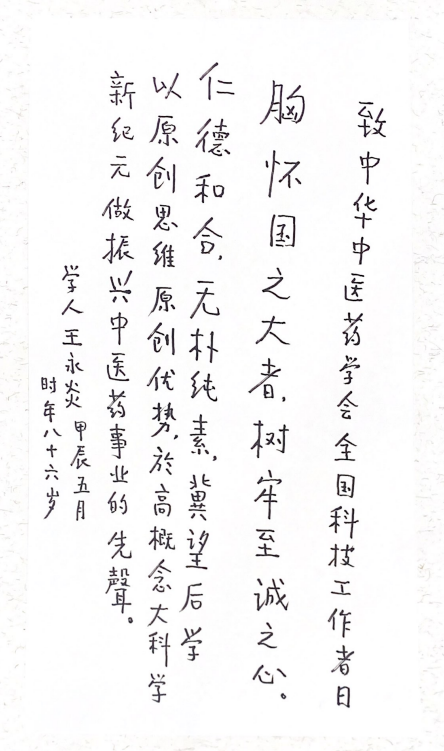 致中华中医药学会全国科技工作者日
胸怀国之大者,树牢至诚之心。
仁德和合,无朴纯素,冀望后学
以原创思维原创优势,於高概念大科学
新纪元做振兴中医药事业的先聲。
学人王永炎 甲辰五月
时年八十六岁